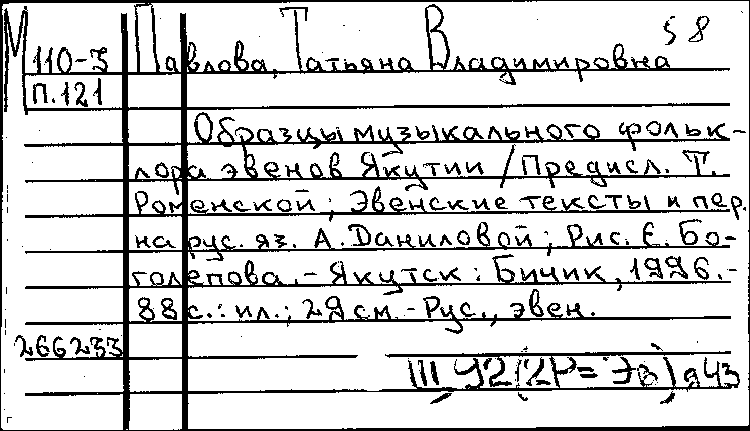 58
М 110-3 Павлова, Татьяна Владимировна
П.121
Образцы музыкального фольк-
лора эвенов Якутии / Предисл. Т.
Роменской; Эвенские тексты и пер.
на рус. яз. А. Даниловой; Рис. Е. Бо-
голепова. - Якутск: Бичик, 1996. -
88 с.: ил.; 29 см. - Рус., эвен.
266233
Щ 92(2Р=Эв)я43